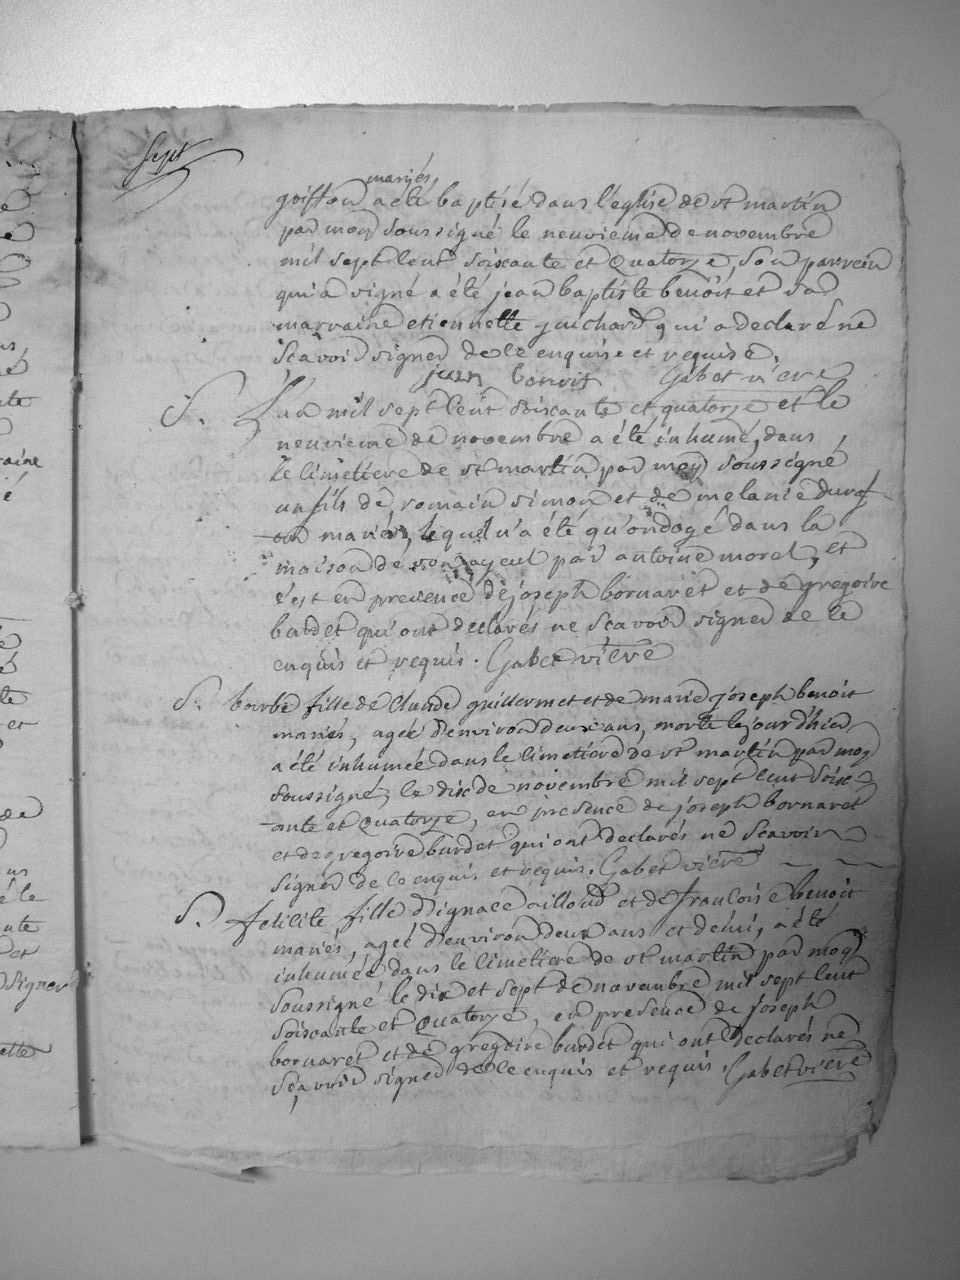 Sept
mariés,
goiffon a été baptisé dans l'église de st martin
par moy soussigné le neuvieme de novembre
mil sept cent soixante et quatorze, son parrein
qui a signé a été jean baptiste benoit et sa
marraine etiennette guichard qui a declaré ne
scavoir signer de ce enquise et requise.
jean benoit Gabet viCre
S. L'an mil sept cent soixante et quatorze et le
neuvieme de novembre a été inhumé, dans
le cimetiere de st martin par moy soussigné
un fils de romain simon et de melanie duraf
-our mariés, lequel n'a été qu'ondoyé dans la
maison de son ayeul par antoine morel, et
c'est en presence de joseph bornaret et de gregoire
burdet qui ont declarés ne scavoir signer de ce
enquis et requis. Gabet viCre
S. barbe fille de Claude guillermet et de marie joseph benoit
mariés, agée d'environ deux ans, morte le jour d'hier
a été inhumée dans le cimetiere de st martin par moy
soussigné, le dix de novembre mil sept cent soix
-ante et quatorze, en presence de joseph bornaret
et de gregoire burdet qui ont declarés ne scavoir
signer de ce enquis et requis. Gabet viCre
S. felicite fille d'ignace ailloud et de francoise benoit
mariés, agée d'environ deux ans et demi, a été
inhumée dans le cimetiere de st martin par moy
soussigné le dix et sept de novembre mil sept cent
soixante et quatorze, en presence de joseph
bornaret et de gregoire burdet qui ont declarés ne
scavoir signer de ce enquis et requis. Gabet viCre